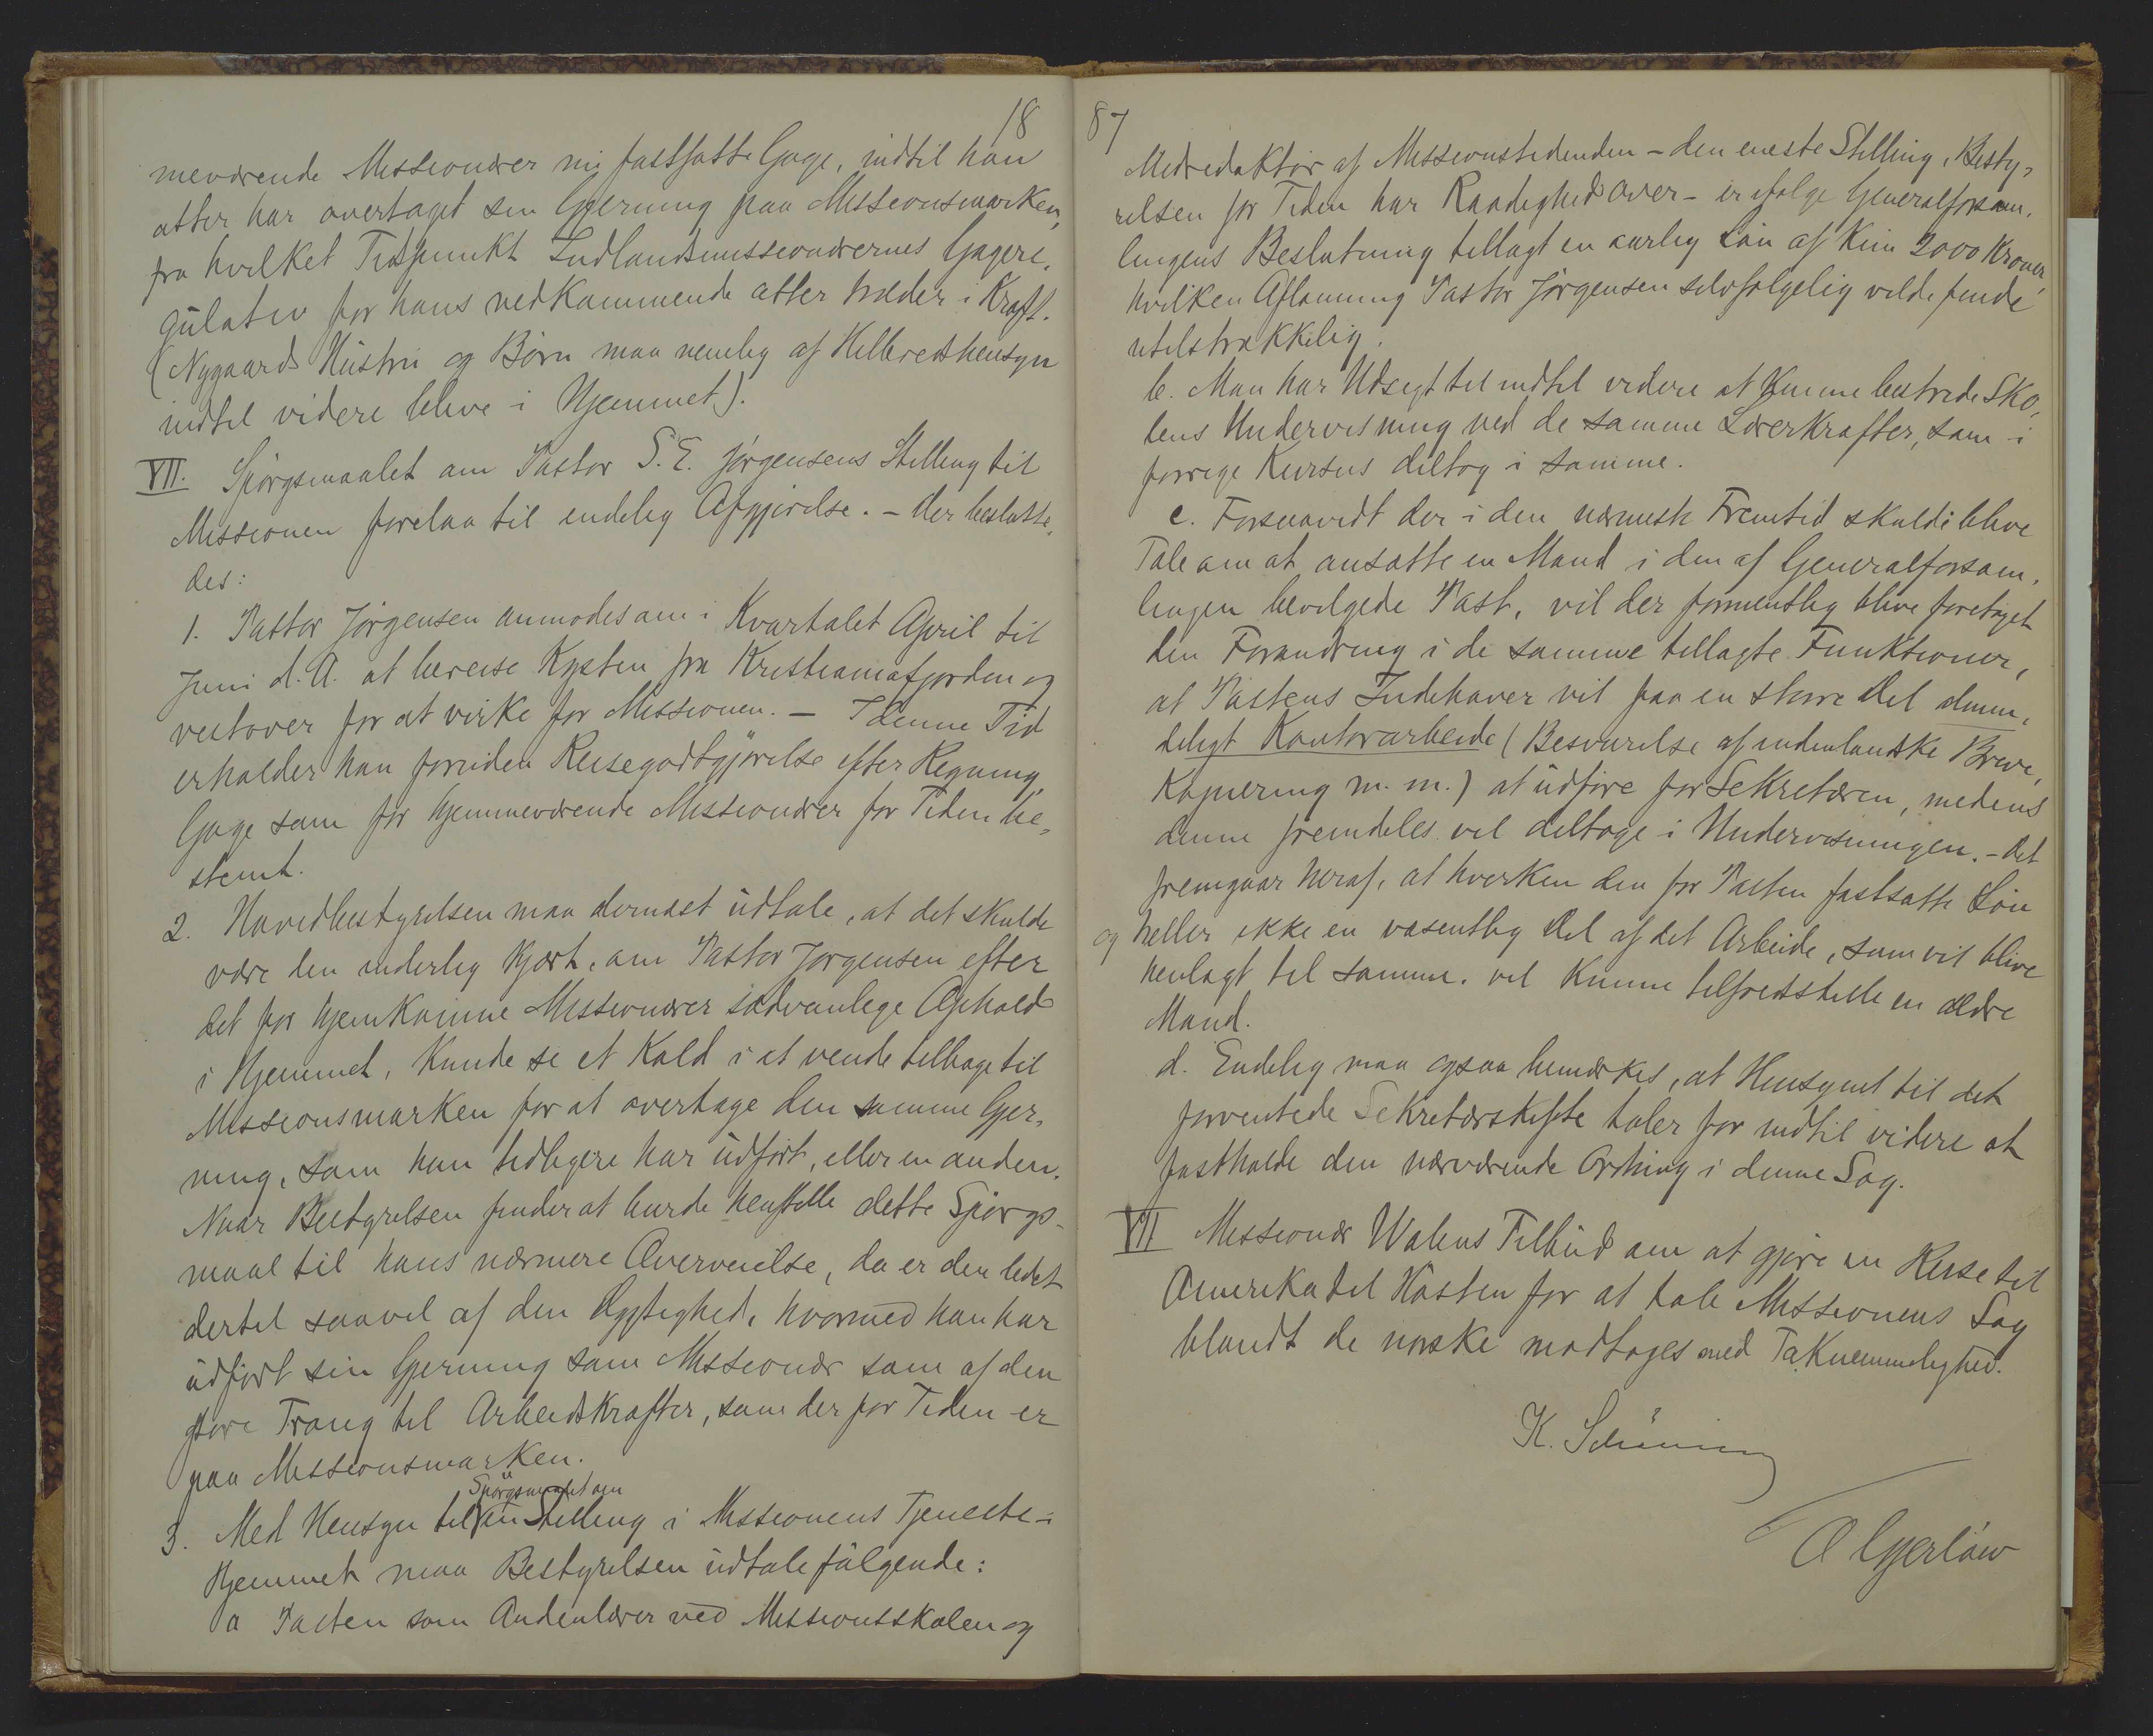 18
meværende Missionærer ny fastsatte Gage, indtil han
atter har overtaget sin Gjerning paa Missionsmarken,
fra hvilket Tidspunkt Indlandsmissionærernes Gagere-
gulativ for hans vedkommende atter træder i Kraft.
(Nygaards Hustru og Børn maa nemlig af Helbredshensyn
indtil videre blive i Hjemmet).
VII. Spörgsmaalet om Pastor S. E. Jörgensens Stilling til
Missionen forelaa til endelig Afgjörelse. – Der beslutte-
des:
1. Pastor Jörgensen anmodes om i Kvartalet April til
Juni d. A. at bereise Kysten fra Kristianiafjorden og
vestover for at virke for Missionen. – I denne Tid
erholder han foruden Reisegodtgjörelse efter Regning,
Gage som for hjemmeværende Missionærer for Tiden be-
stemt.
2. Hovedbestyrelsen maa dernæst udtale, at det skulde
være den inderlig kjært, om Pastor Jörgensen efter
det for hjemkomne Missionærer sædvanlige Ophold
i Hjemmet, kunde se et Kald i at vende tilbage til
Missionsmarken for at overtage den samme Gjer-
ning, som han tidligere har udført, eller en anden.
Naar Bestyrelsen finder at burde henstille dette Spörgs-
maal til hans nærmere Overveielse, da er den ledet
dertil saavel af den Dygtighed, hvormed han har
udfört sin Gjerning som Missionær som af den
store Trang til Arbeidskræfter, som der for Tiden er
paa Missionsmarken.
Spörgsmaalet om
3. Med Hensyn til en Stilling i Missionens Tjeneste i
Hjemmet maa Bestyrelsen udtale fölgende:
a Posten som Andenlærer ved Missionsskolen og
87
Medredaktör af Missionstidenden – den eneste Stilling, Besty-
relsen for Tiden har Raadighed over – er ifølge Generalforsam-
lingens Beslutning tillagt en aarlig Lön af Kun 2000 Kroner,
hvilken Aflønning Pastor Jörgensen selvfølgelig vilde finde
utilstrækkelig.
b. Man har Udsigt til indtil videre at kunne bestride Sko-
lens Undervisning ved de samme Lærerkræfter, som i
forrige Kursus deltog i samme.
c. Forsaavidt der i den nærmeste Fremtid skulde blive
Tale om at ansætte en Mand i den af Generalforsam-
lingen bevilgede Post, vil der formentlig blive foretaget
den Forandring i de samme tillagte Funktioner,
at Postens Indehaver vil faa en större Del almin-
deligt Kontorarbeide (Besvarelse af indenlandske Breve,
Kopiering m. m.) at udføre for Sekretæren, medens
denne fremdeles vil deltage i Undervisningen. – Det
fremgaar heraf, at hverken den for Posten fastsatte Lön
og heller ikke en væsentlig Del af det Arbeide, som vil blive
henlagt til samme, vil kunne tilfredsstille en ældre
Mand.
d. Endelig maa ogsaa bemærkes, at Hensynet til det
forventede Sekretærskifte taler for indtil videre at
fastholde den nærværende Ordning i denne Sag.
VII Missionær Walens Tilbud om at gjøre en Reise til
Amerika til Hösten for at tale Missionens Sag
blandt de norske modtoges med Taknemmelighed.
K. Schöning
O Gjerlöw